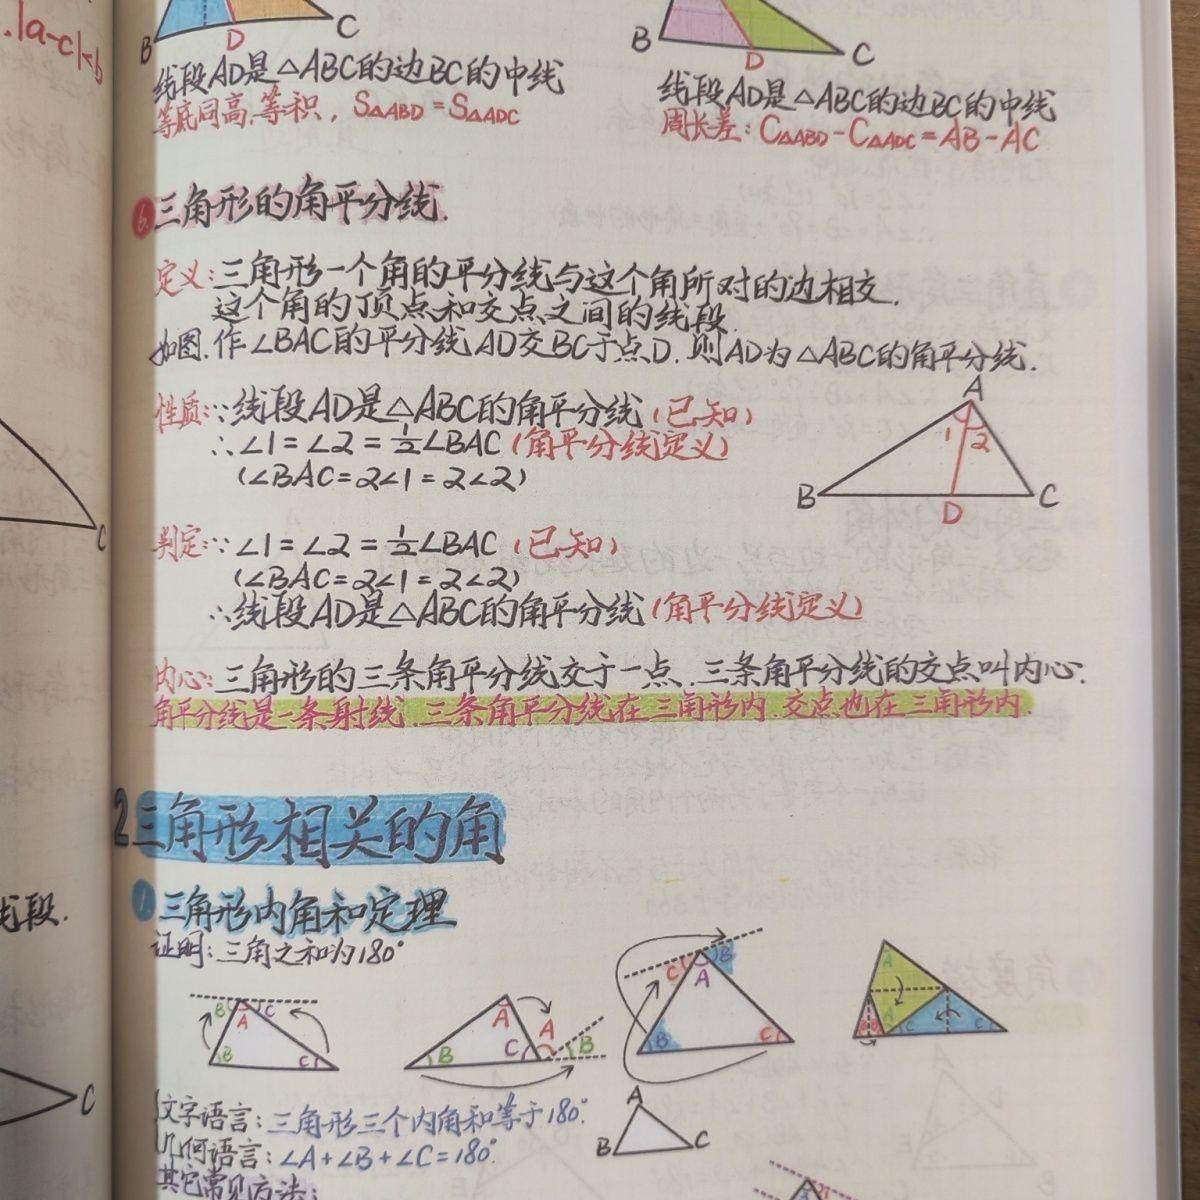 .|a-c|<b
B D C
B D C
线段AD是△ABC的边BC的中线
等底同高,等积, S△ABD=S△ADC
线段AD是△ABC的边BC的中线
周长差: C△ABD-C△ADC=AB-AC
6.三角形的角平分线.
定义:三角形一个角的平分线与这个角所对的边相交,
这个角的顶点和交点之间的线段.
如图,作∠BAC的平分线AD交BC于点D.则AD为△ABC的角平分线.
性质:∵线段AD是△ABC的角平分线(已知)
∴∠1=∠2=½∠BAC(角平分线定义)
(∠BAC=2∠1=2∠2)
A
1 2
B D C
判定:∵∠1=∠2=½∠BAC(已知)
(∠BAC=2∠1=2∠2)
∴线段AD是△ABC的角平分线(角平分线定义)
内心:三角形的三条角平分线交于一点.三条角平分线的交点叫内心.
角平分线是一条射线.三条角平分线在三角形内.交点也在三角形内.
C
2三角形相关的角
1.三角形内角和定理
证明:三角之和为180°
线段.
B A C
B C
A A
B C B
C A B
B C
A
B A C C
C
文字语言:三角形三个内角和等于180°.
几何语言:∠A+∠B+∠C=180°.
A
B C
其它常见方法: